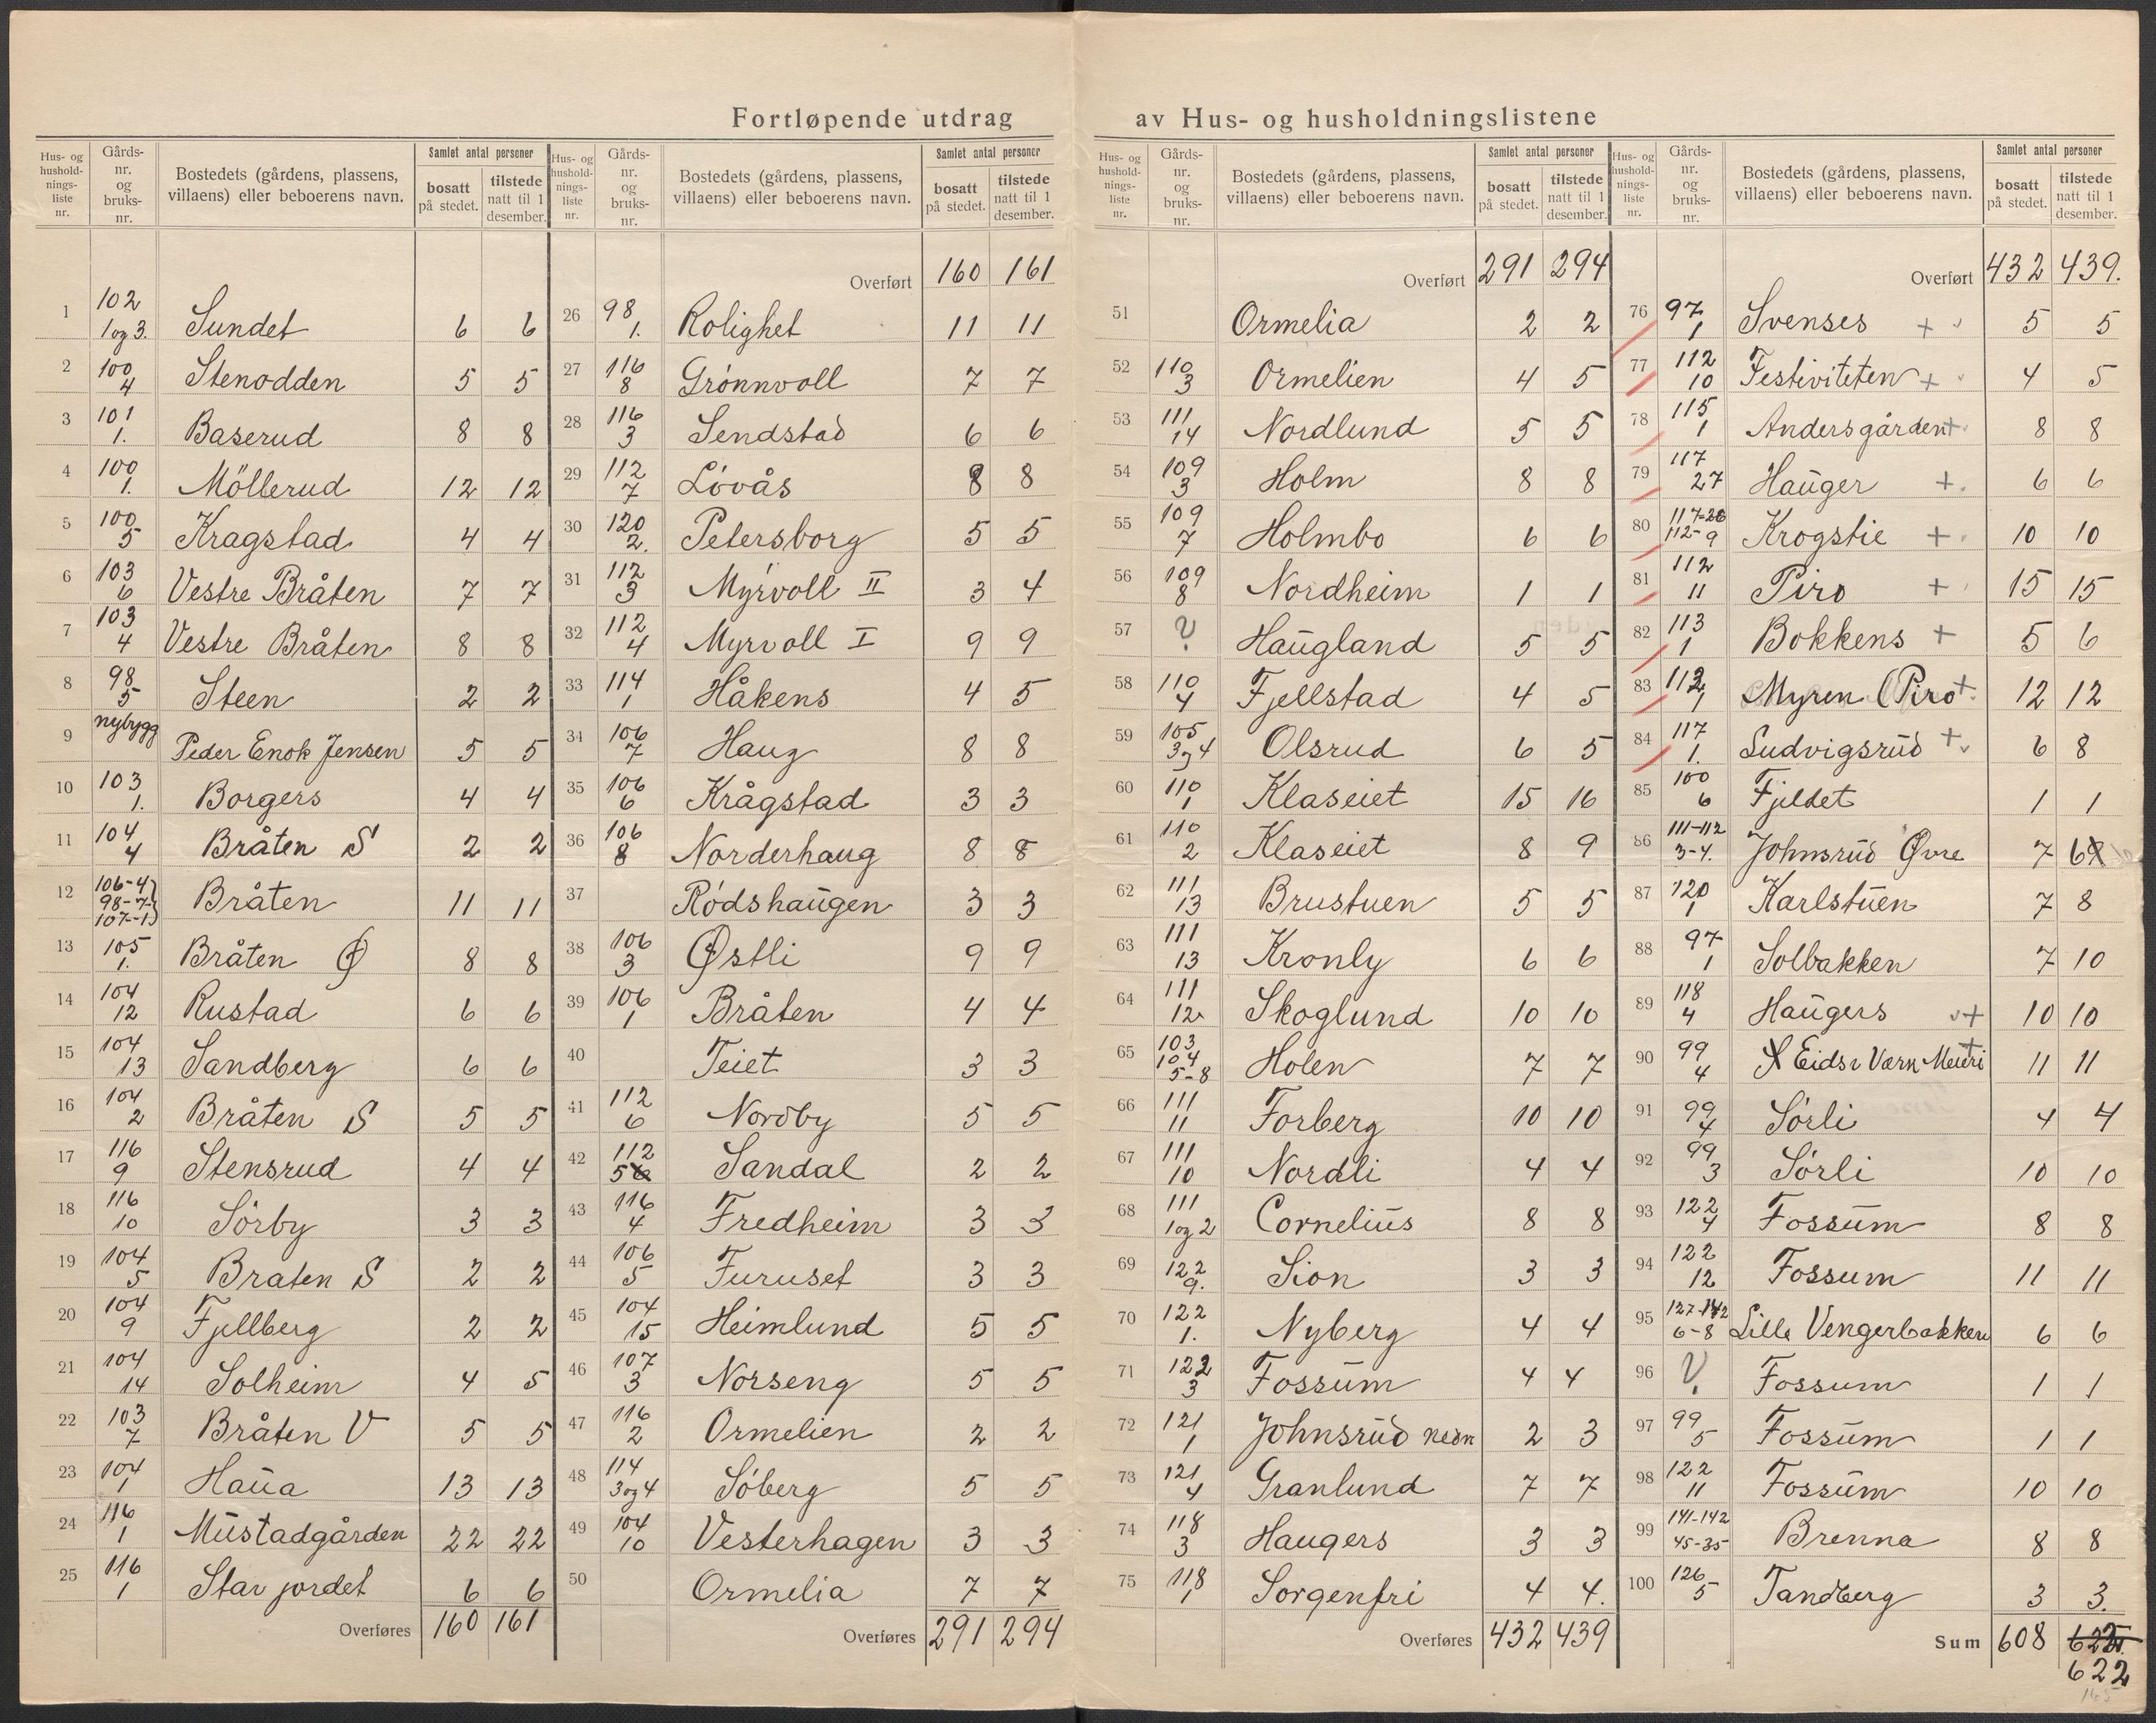 Fortløpende utdrag av Hus- og husholdningslistene
Hus- og hushold-nings-liste nr. | Gårds-nr. og bruks-nr. | Bostedets (gårdens, plassens, villaens) eller beboerens navn. | Samlet antal personer | bosatt på stedet. | tilstede natt til 1 desember.
1 | 102 1og 3. | Sundet | 6 | 6
2 | 100 4 | Stenodden | 5 | 5
3 | 101 1. | Baserud | 8 | 8
4 | 100 1. | Möllerud | 12 | 12
5 | 100 5 | Kragstad | 4 | 4
6 | 103 6 | Vestre Bråten | 7 | 7
7 | 103 4 | Vestre Bråten | 8 | 8
8 | 98 5 | Steen | 2 | 2
9 | nybygg | Peder Enok Jensen | 5 | 5
10 | 103 1. | Borgers | 4 | 4
11 | 104 4 | Bråten S | 2 | 2
12 | 106-4 98-7 107-1 | Bråten | 11 | 11
13 | 105 1. | Bråten Ø | 8 | 8
14 | 104 12 | Rustad | 6 | 6
15 | 104 13 | Sandberg | 6 | 6
16 | 104 2 | Bråten S | 5 | 5
17 | 116 9 | Stensrud | 4 | 4
18 | 116 10 | Sörby | 3 | 3
19 | 104 5 | Braten S | 2 | 2
20 | 104 9 | Fjellberg | 2 | 2
21 | 104 14 | Solheim | 4 | 5
22 | 103 7 | Bråten V | 5 | 5
23 | 104 1 | Haua | 13 | 13
24 | 116 1 | Mustadgården | 22 | 22
25 | 116 1 | Stav jordet | 6 | 6
Overføres | 160 | 161
Hus- og hushold-nings-liste nr. | Gårds-nr. og bruks-nr. | Bostedets (gårdens, plassens, villaens) eller beboerens navn. | Samlet antal personer | bosatt på stedet. | tilstede natt til 1 desember.
Overført | 160 | 161
26 | 98 1. | Rolighet | 11 | 11
27 | 116 8 | Grönnvoll | 7 | 7
28 | 116 3 | Sendstad | 6 | 6
29 | 112 7 | Lövås | 8 | 8
30 | 120 2. | Petersborg | 5 | 5
31 | 112 3 | Myrvoll II | 3 | 4
32 | 112 4 | Myrvoll I | 9 | 9
33 | 114 1 | Håkens | 4 | 5
34 | 106 7 | Haug | 8 | 8
35 | 106 6 | Krågstad | 3 | 3
36 | 106 8 | Norderhaug | 8 | 8
37 | Rödshaugen | 3 | 3
38 | 106 3 | Østli | 9 | 9
39 | 106 1 | Bråten | 4 | 4
40 | Teiet | 3 | 3
41 | 112 6 | Nordby | 5 | 5
42 | 112 5 | Sandal | 2 | 2
43 | 116 4 | Fredheim | 3 | 3
44 | 106 5 | Furuset | 3 | 3
45 | 104 15 | Heimlund | 5 | 5
46 | 107 3 | Norseng | 5 | 5
47 | 116 2 | Ormelien | 2 | 2
48 | 114 3og4 | Söberg | 5 | 5
49 | 104 10 | Vesterhagen | 3 | 3
50 | Ormelia | 7 | 7
Overføres | 291 | 294
Hus- og hushold-nings-liste nr. | Gårds-nr. og bruks-nr. | Bostedets (gårdens, plassens, villaens) eller beboerens navn. | Samlet antal personer | bosatt på stedet. | tilstede natt til 1 desember.
Overført | 291 | 294
51 | Ormelia | 2 | 2
52 | 110 3 | Ormelien | 4 | 5
53 | 111 14 | Nordlund | 5 | 5
54 | 109 3 | Holm | 8 | 8
55 | 109 7 | Holmbo | 6 | 6
56 | 109 8 | Nordheim | 1 | 1
57 | ? | Haugland | 5 | 5
58 | 110 4 | Fjellstad | 4 | 5
59 | 105 3og4 | Olsrud | 6 | 5
60 | 110 1 | Klaseiet | 15 | 16
61 | 110 2 | Klaseiet | 8 | 9
62 | 111 13 | Brustuen | 5 | 5
63 | 111 13 | Kronly | 6 | 6
64 | 111 12 | Skoglund | 10 | 10
65 | 103 104 5-8 | Holen | 7 | 7
66 | 111 11 | Forberg | 10 | 10
67 | 111 10 | Nordli | 4 | 4
68 | 111 1og 2 | Cornelius | 8 | 8
69 | 122 9. | Sion | 3 | 3
70 | 122 1. | Nyberg | 4 | 4
71 | 122 3 | Fossum | 4 | 4
72 | 121 1 | Johnsrud nedn | 2 | 3
73 | 121 4 | Granlund | 7 | 7
74 | 118 3 | Haugers | 3 | 3
75 | 118 1 | Sorgenfri | 4 | 4.
Overføres | 432 | 439
Hus- og hushold-nings-liste nr. | Gårds-nr. og bruks-nr. | Bostedets (gårdens, plassens, villaens) eller beboerens navn. | Samlet antal personer | bosatt på stedet. | tilstede natt til 1 desember.
Overført | 432 | 439.
76 | 97 1 | Svenses + | 5 | 5
77 | 112 10 | Festiviteten + | 4 | 5
78 | 115 1 | Andersgården + | 8 | 8
79 | 117 27 | Hauger + | 6 | 6
80 | 117-26 112-9 | Krogstie + | 10 | 10
81 | 112 11 | Piro + | 15 | 15
82 | 113 1 | Bokkens + | 5 | 6
83 | 112 1 | Myren (Piro + | 12 | 12
84 | 117 1. | Ludvigsrud + | 6 | 8
85 | 100 6 | Fjeldet | 1 | 1
86 | 111-112 3-4. | Johnsrud Øvre | 7 | 6
87 | 120 1 | Karlstuen | 7 | 8
88 | 97 1 | Solbakken | 7 | 10
89 | 118 4 | Haugers + | 10 | 10
90 | 99 4 | Eidsv Værk Meieri + | 11 | 11
91 | 99 4 | Sörli | 4 | 4
92 | 99 3 | Sörli | 10 | 10
93 | 122 4 | Fossum | 8 | 8
94 | 122 12 | Fossum | 11 | 11
95 | 127-142 6-8 | Lille Vengerbakken | 6 | 6
96 | ? | Fossum | 1 | 1
97 | 99 5 | Fossum | 1 | 1
98 | 122 11 | Fossum | 10 | 10
99 | 141-142 45-35 | Brenna | 8 | 8
100 | 126 5 | Tandberg | 3 | 3.
Sum | 608
622